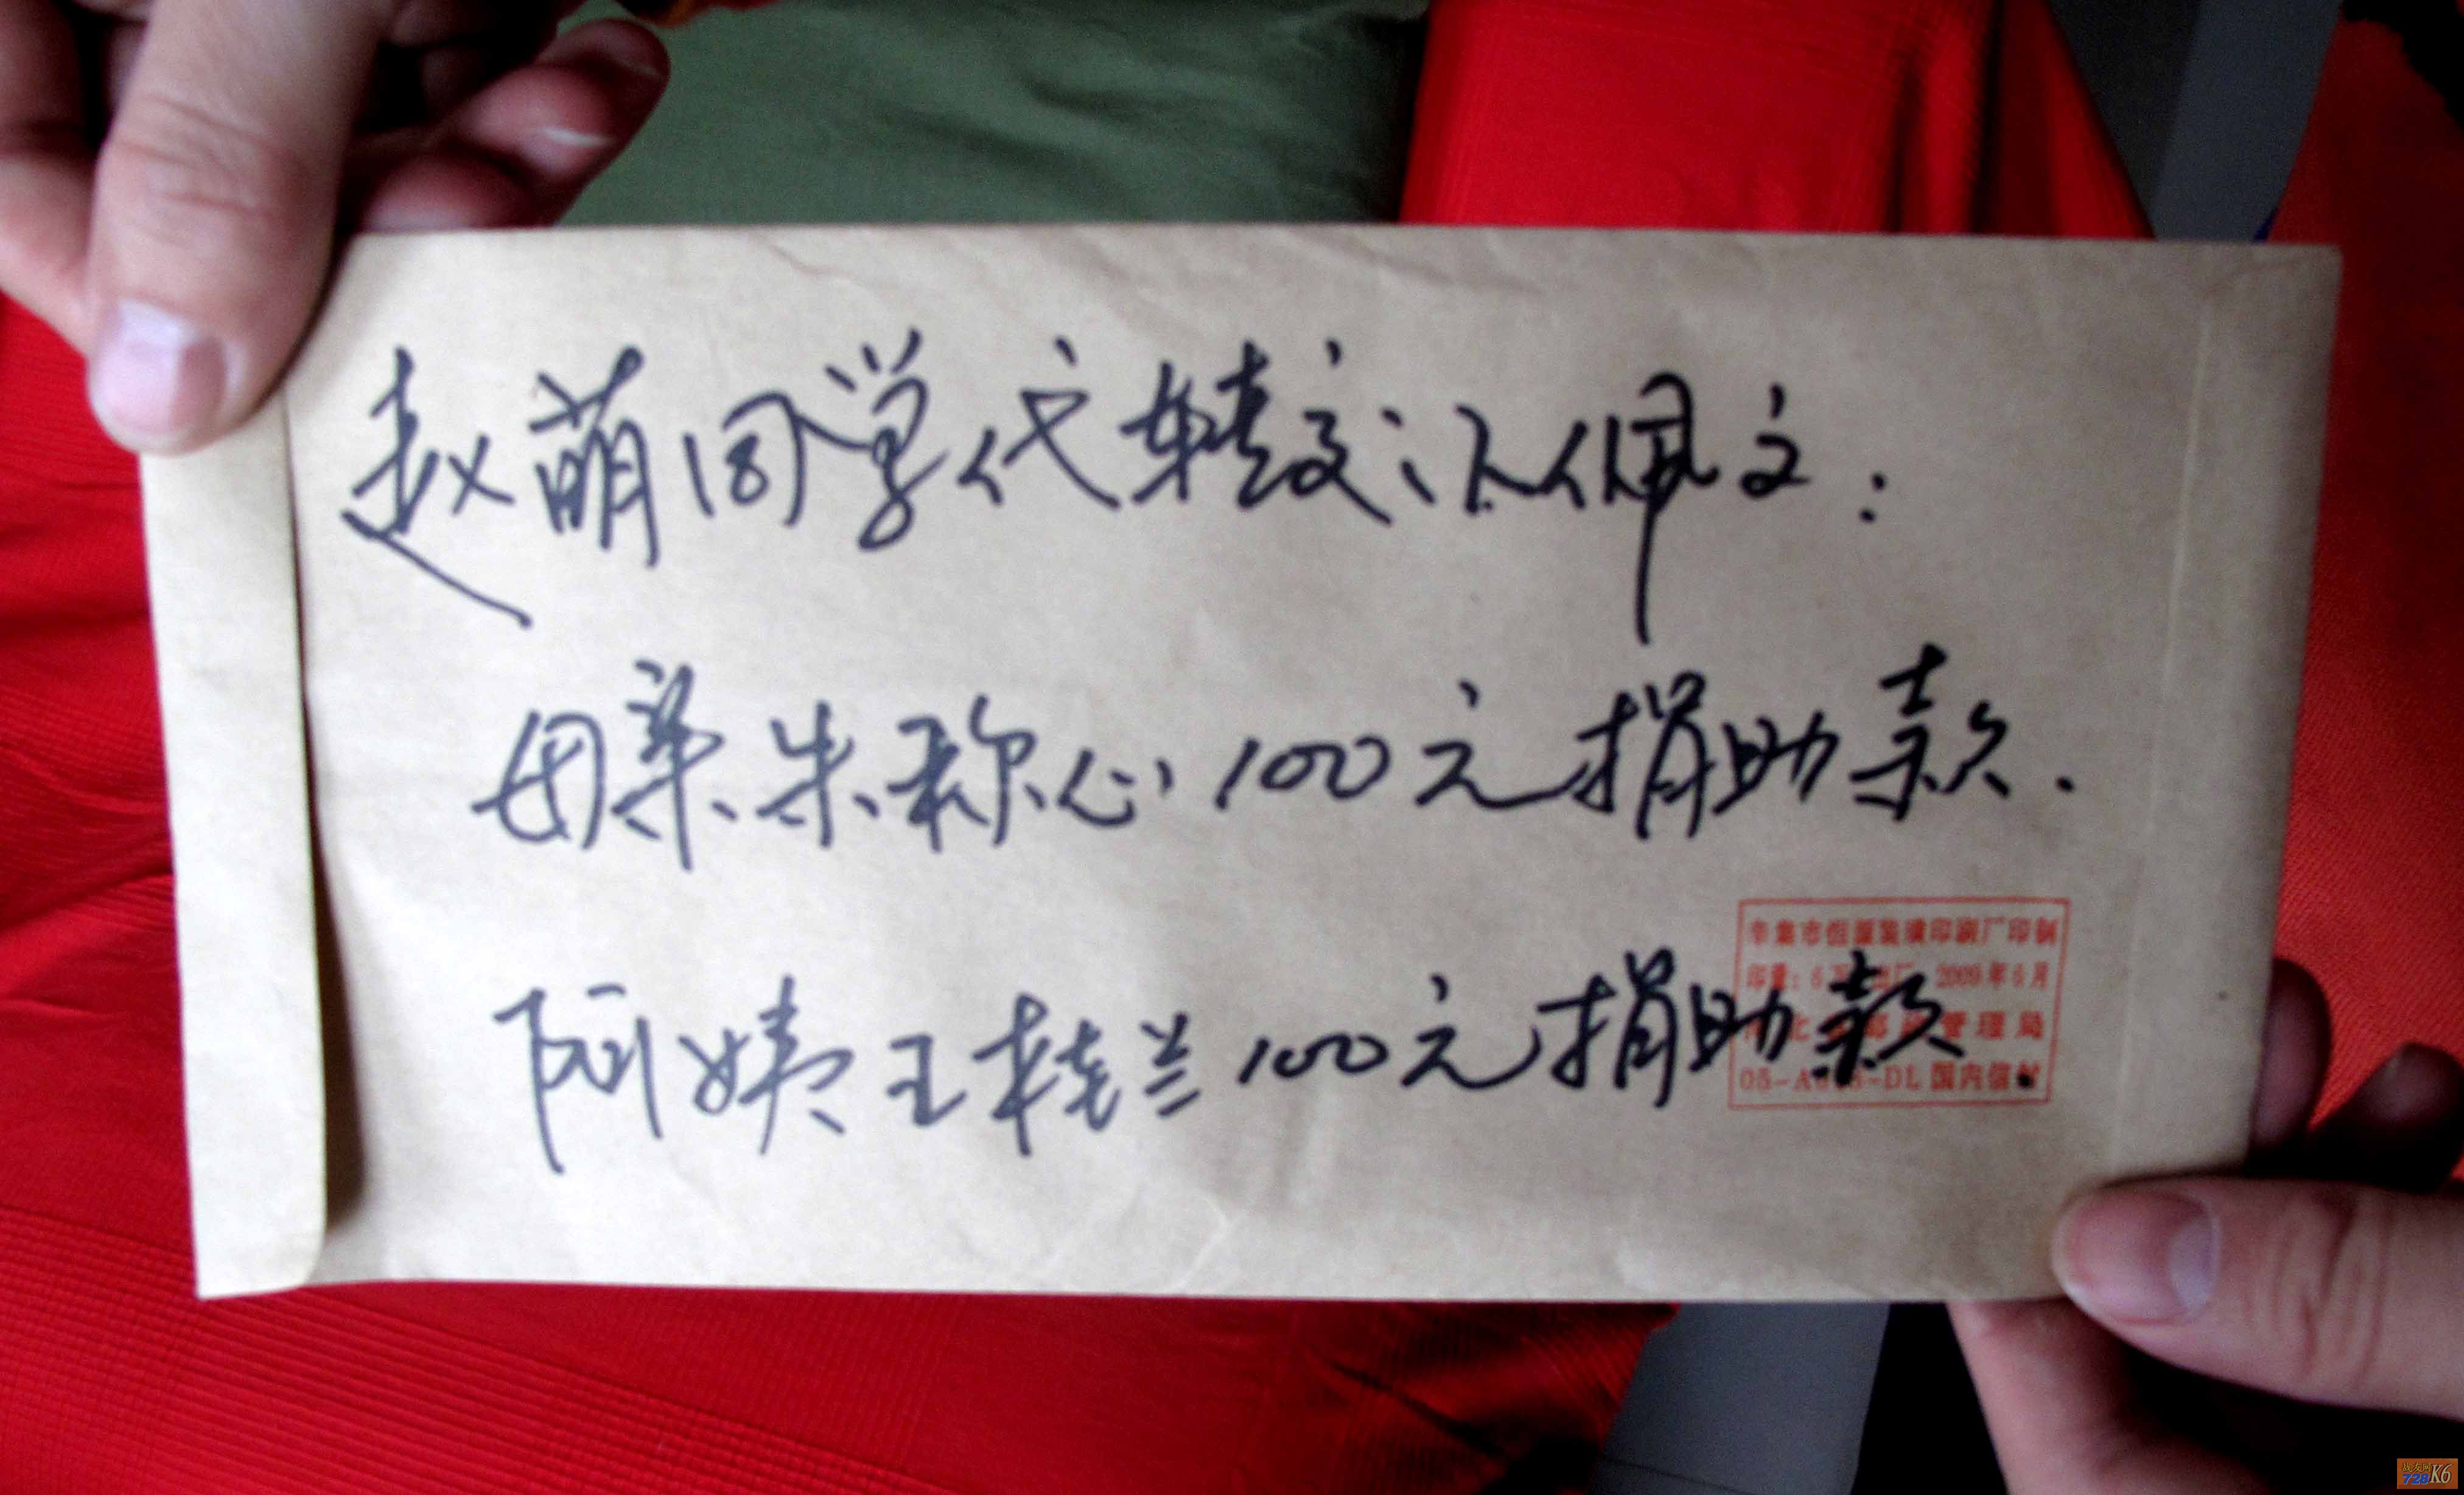 赵萌同学代转交汲佩文:
母亲朱称心100元捐助款.
阿姨王桂兰100元捐助款.
辛集市恒源装潢印刷厂印制
印量: 6万 出厂: 2009年6月
河北省邮政管理局
05-A 8-DL 国内信封
战友网
728K6